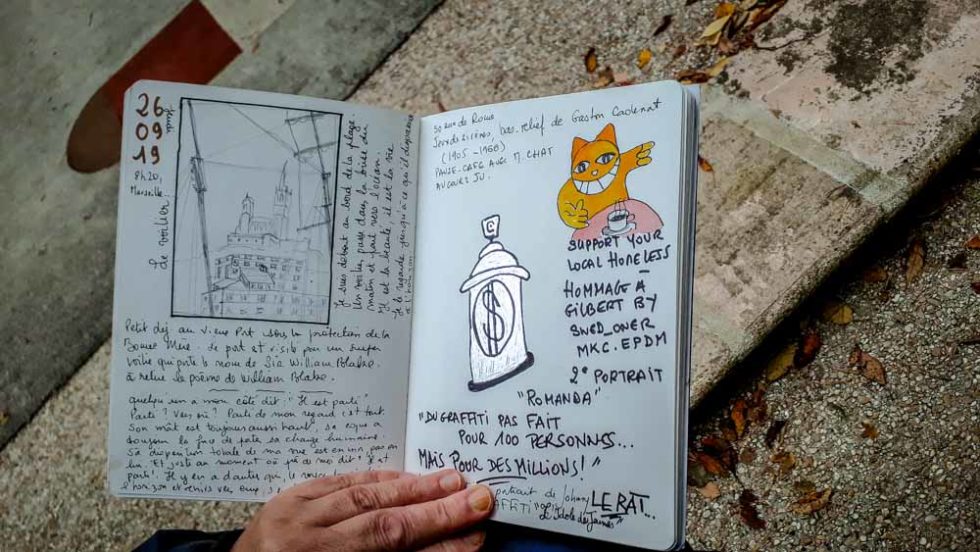 26
09
19
jeudi
8h20,
Marseille...
Le voilier
Je suis debout au bord de la plage.
Un voilier passe dans la brise du
matin et part vers l'océan.
Il est la beauté, il est la vie
Je le regarde jusqu'à ce qu'il disparaisse
à l'horizon.
Petit déj au Vieux Port sous la protection de la
Bonne Mère. Le port et visite pour un super
voilier qui porte le nom de Sir William Blake.
à relire le poème de William Blake.
quelqu'un à mon côté dit : "Il est parti"
Parti ? Vers où ? Parti de mon regard c'est tout
Son mât est toujours aussi haut, sa coque a
toujours la force de porter sa charge humaine.
Sa disparition totale de ma vue est en moi, pas en
lui. Et juste au moment où près de moi dit : Il est
parti ! Il y en a d'autres qui, le
l'horizon et
50 rue de Rome
bas. relief de Gaston Cadenat
(1905 - 1966)
PAUSE-CAFÉ AVEC M. CHAT
SUPPORT YOUR
LOCAL HOMELESS
-
HOMMAGE A
GILBERT BY
SWED_ONER
MKC.EPDM
2° PORTRAIT
"ROMANDA"
C
$
"DU GRAFFITI PAS FAIT
POUR 100 PERSONNES...
MAIS POUR DES MILLIONS !"
portrait de Johnny
LE RAT...
Idole des Jeunes"